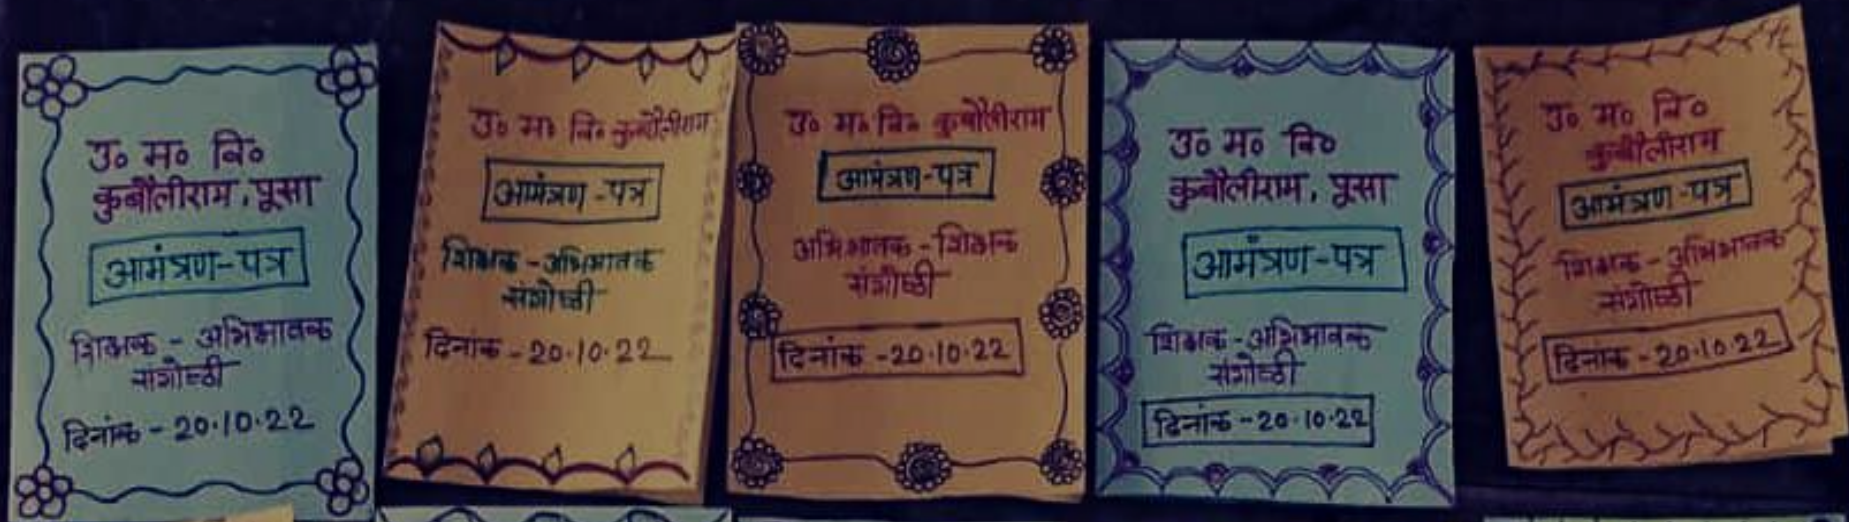 उ० म० वि०
कुबौलीराम, पूसा
आमंत्रण-पत्र
शिक्षक - अभिभावक
संगोष्ठी
दिनांक - 20.10.22
उ० म० वि० कुबौलीराम
आमंत्रण-पत्र
शिक्षक - अभिभावक
संगोष्ठी
दिनांक - 20.10.22
उ० म० वि० कुबौलीराम
आमंत्रण-पत्र
अभिभावक - शिक्षक
संगोष्ठी
दिनांक - 20.10.22
उ० म० वि०
कुबौलीराम, पूसा
आमंत्रण-पत्र
शिक्षक - अभिभावक
संगोष्ठी
दिनांक - 20.10.22
उ० म० वि०
कुबौलीराम
आमंत्रण-पत्र
शिक्षक - अभिभावक
संगोष्ठी
दिनांक - 20.10.22